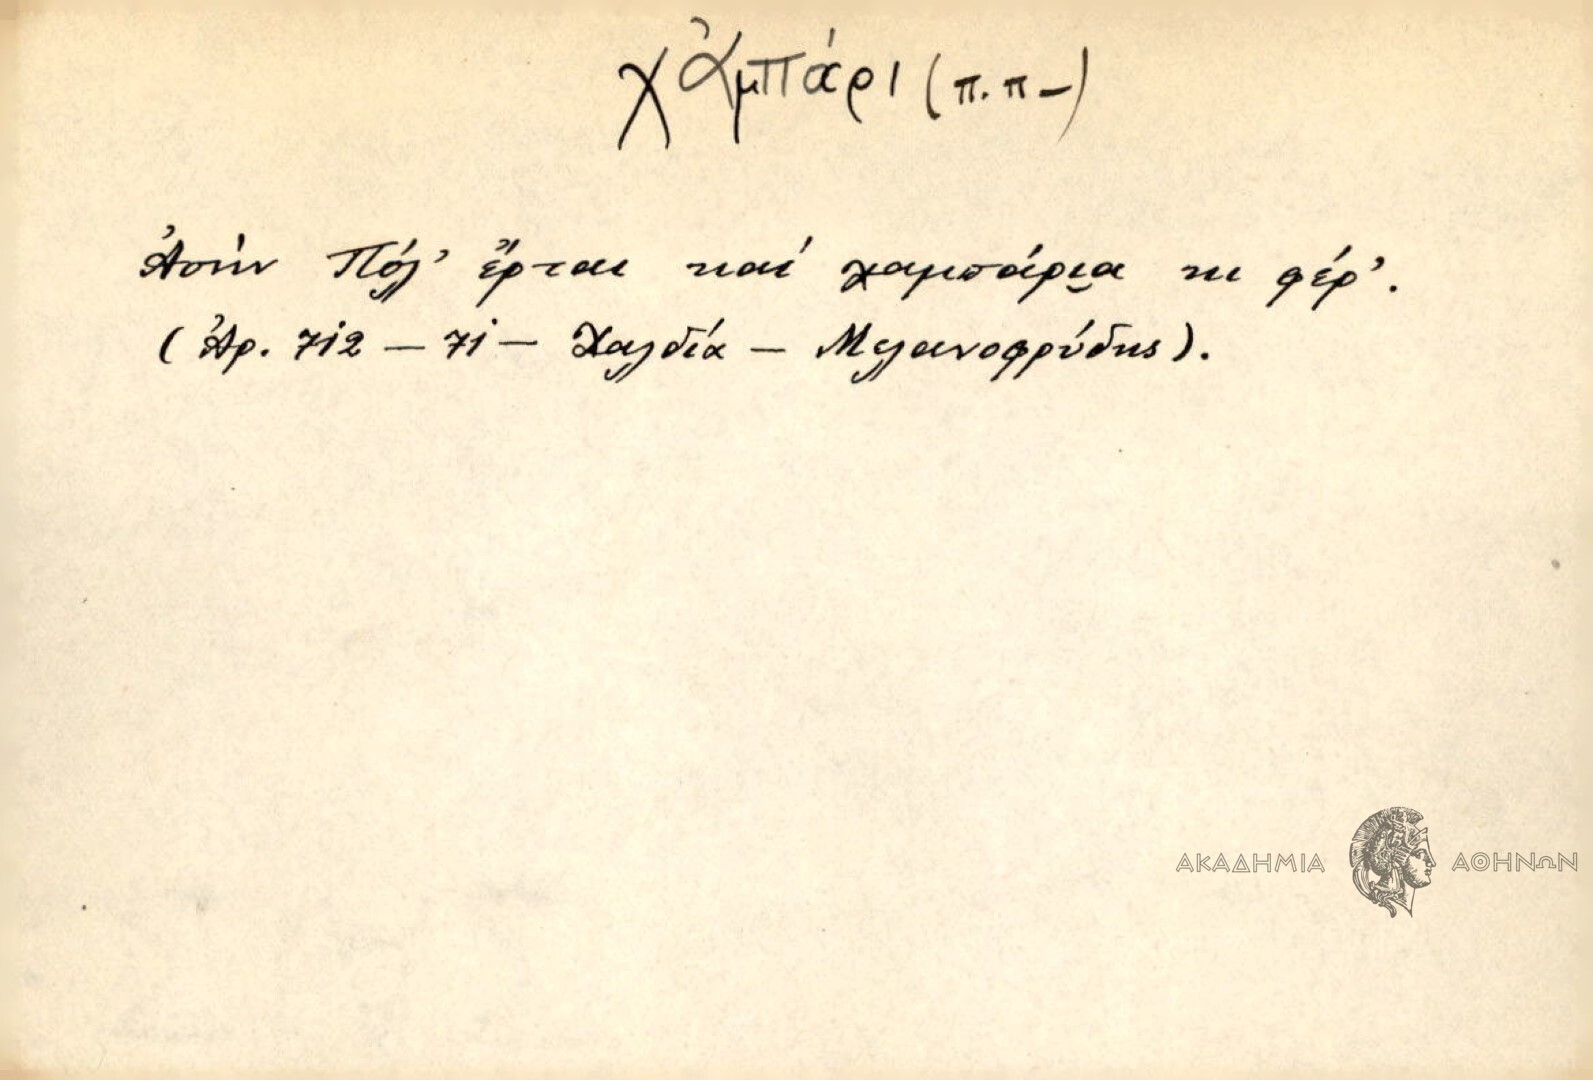 χἀμπάρι (π.π–)
Ἀσὴν Πόλ’ ἔρται καὶ χαμπάρι̮α κι φέρ’.
(Ἀρ. 712 – 71 – Χαλδία – Μελανοφρύδης).
ΑΚΑΔΗΜΙΑ ΑΘΗΝΩΝ